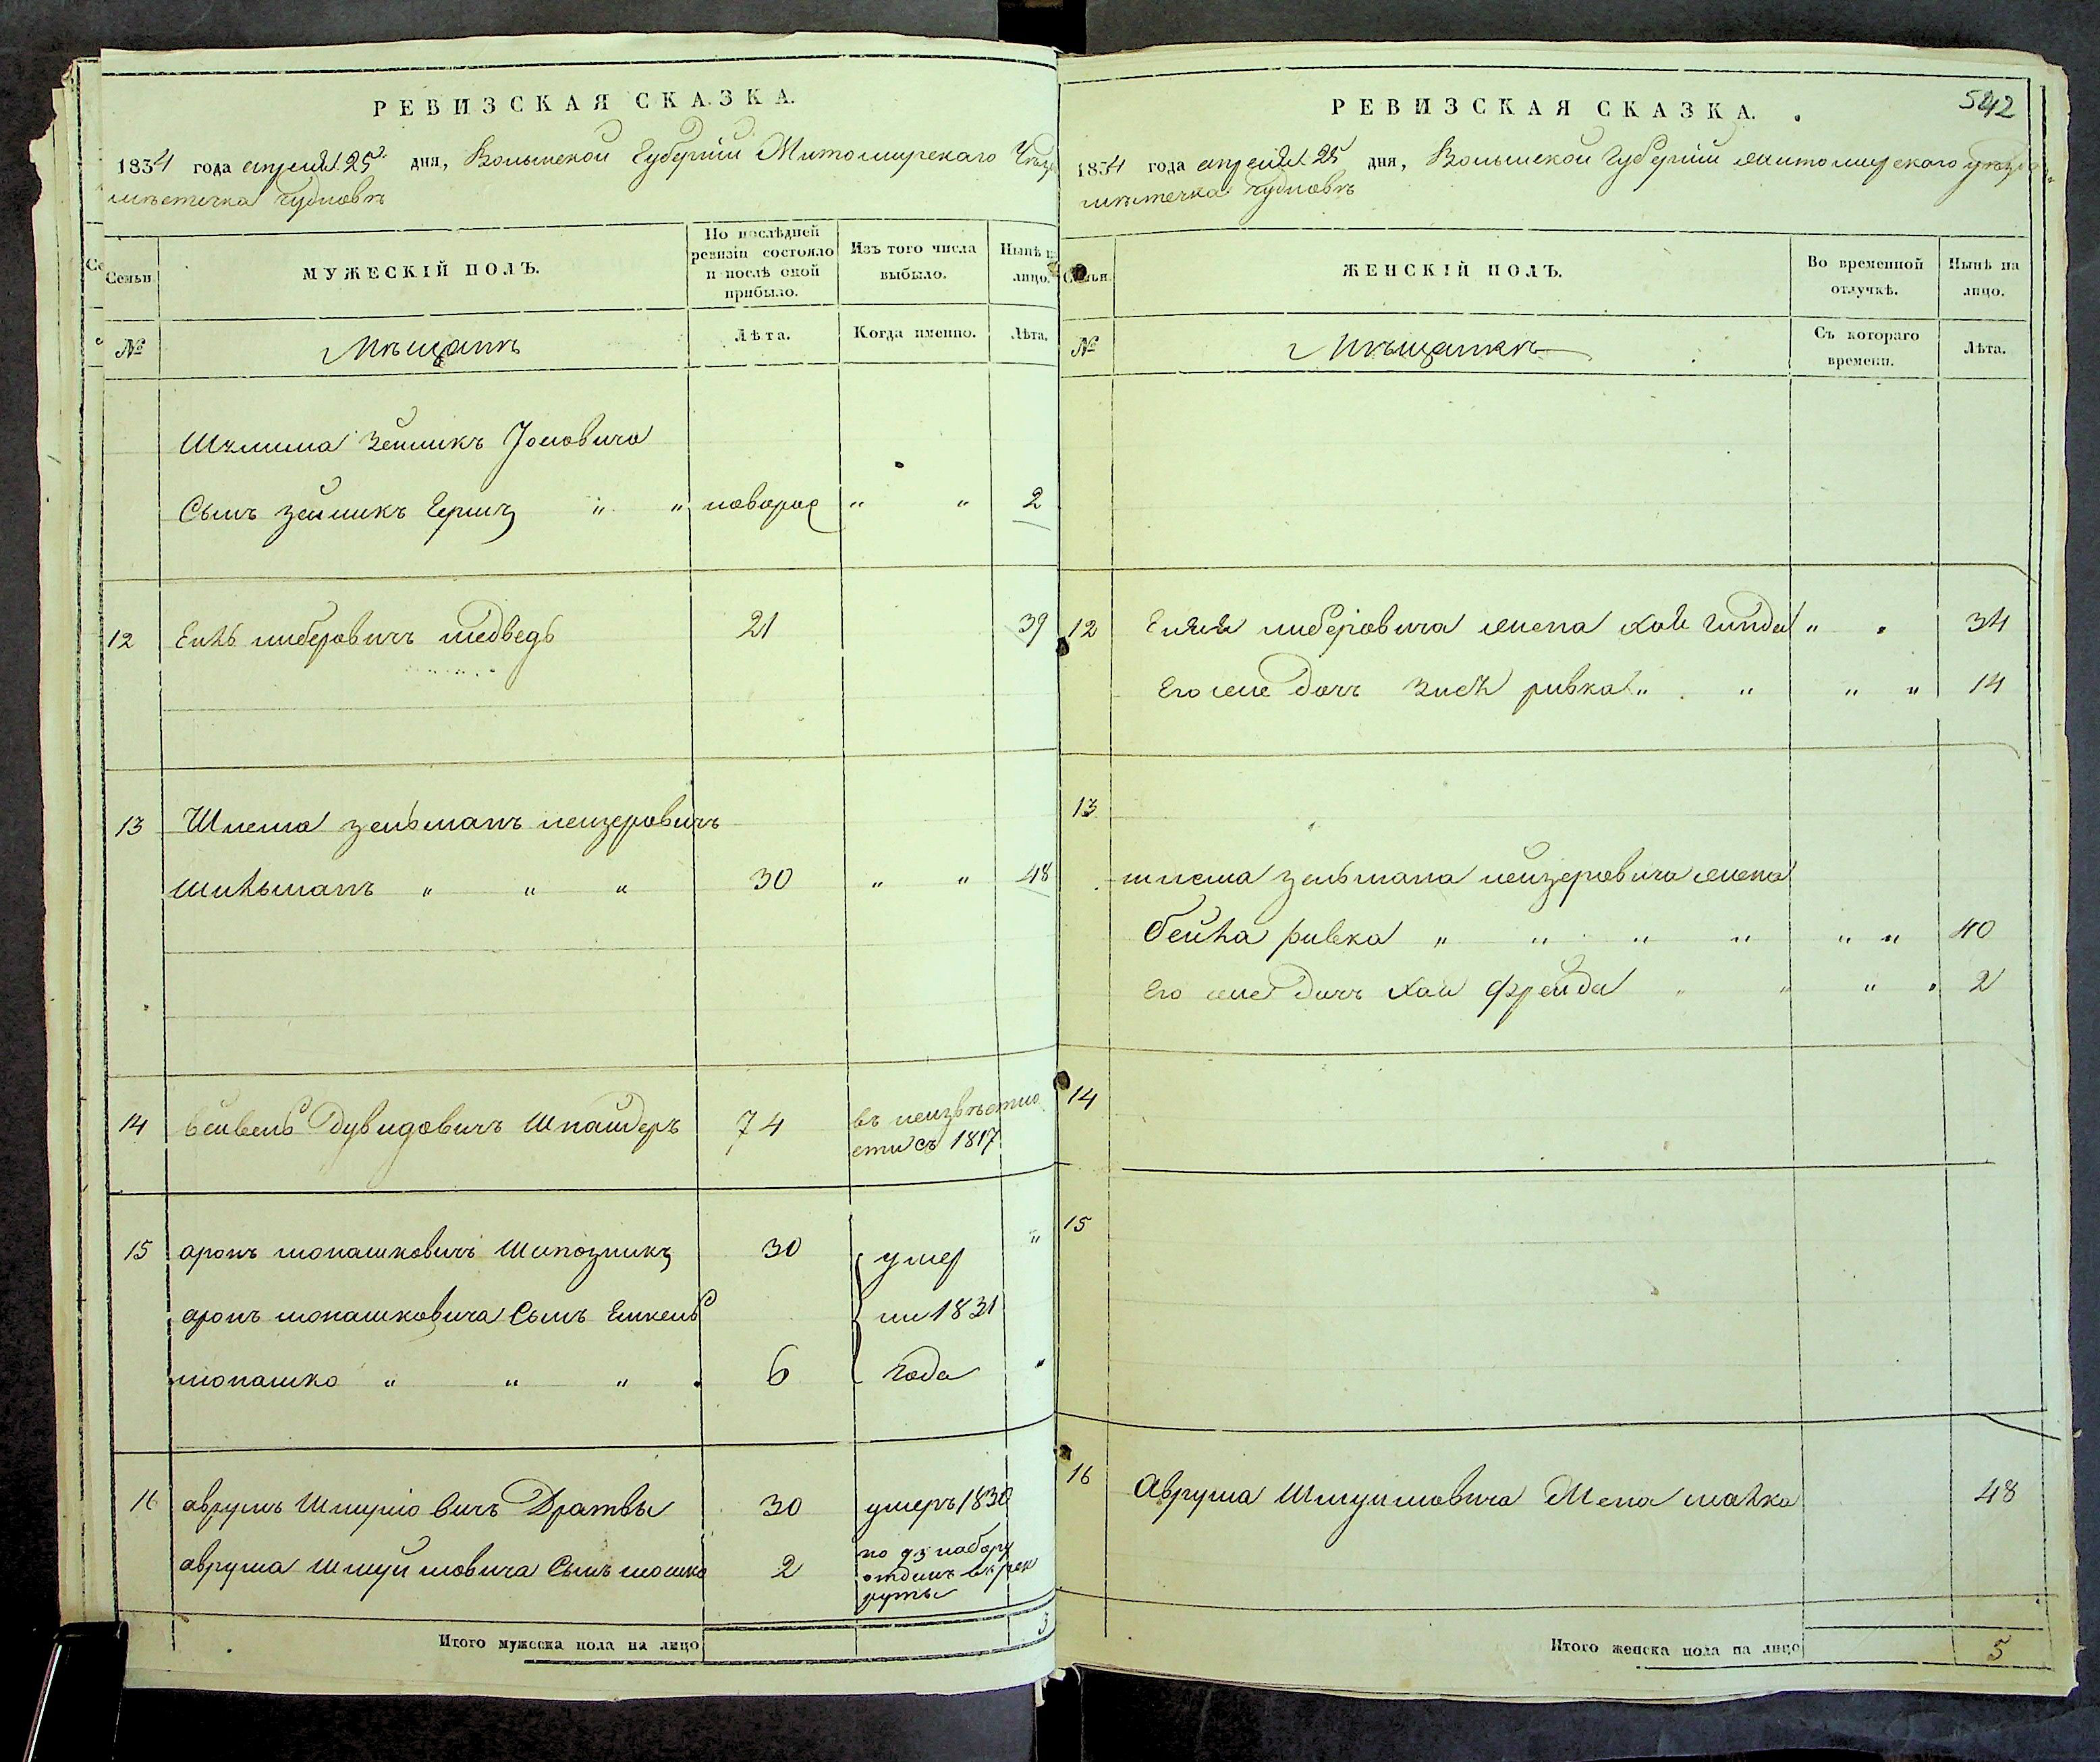 РЕВИЗСКАЯ СКАЗКА.
1834 года апреля 25 дня, Волынской Губернии Житомирскаго Уезда
местечка Чуднова
Семьи
МУЖЕСКІЙ ПОЛЪ.
По послѣдней ревизіи состояло и послѣ оной прибыло.
Изъ того числа выбыло.
Нынѣ на лицо.
№
Мѣщанъ
Лѣта.
Когда именно.
Лѣта.
Зейликъ
Сынъ зейликъ Гершъ " " новорож " " 2
12 либеровичъ медведь 21 39
13 Шлема зельманъ лейзеровичъ
" " " 30 " " 48
14 Дувидовичъ 74 въ неизвѣстно
сти съ 1817
15 аронъ мопашковичъ 30 умер "
аронъ мопашковича Сынъ ли 1831
мопашко " " " 6 года "
16 аврумъ Дратвы 30 умеръ 1830
аврума Шмуйловича Сынъ мошко 2 по 93 набору
отданъ въ рек
руты
Итого мужеска пола на лицо 3
542
РЕВИЗСКАЯ СКАЗКА.
1834 года апреля 25 дня, Волынской Губерніи житомирскаго уезда
местечка Чуднова
Семьи.
ЖЕНСКІЙ ПОЛЪ.
Во временной отлучкѣ.
Нынѣ на лицо.
№
Мѣщанкъ
Съ котораго времени.
Лѣта.
12 либеровича жена хая гинда " " 34
Его же дочъ ривка " " " " 14
13
шлема зельмана лейзеровича жена
бейла ривка " " " " " " 40
Его же дочъ хая фрейда " " " " 2
14
15
16 Аврума Шмуйловича Жена малка 48
Итого женска пола на лицо 5